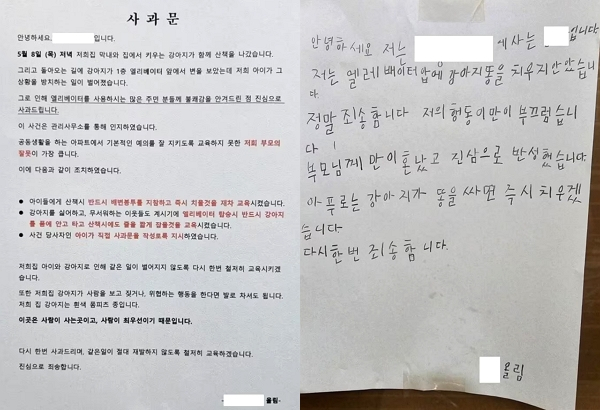 사과문
안녕하세요, 입니다.
5월 8일 (목) 저녁 저희집 막내와 집에서 키우는 강아지가 함께 산책을 나갔습니다.
그리고 돌아오는 길에 강아지가 1층 엘리베이터 앞에서 변을 보았는데 저희 아이가 그
상황을 방치하는 일이 벌어졌습니다.
그로 인해 엘리베이터를 사용하시는 많은 주민 분들께 불쾌감을 안겨드린 점 진심으로
사과드립니다.
이 사건은 관리사무소를 통해 인지하였습니다.
공동생활을 하는 아파트에서 기본적인 예의를 잘 지키도록 교육하지 못한 저희 부모의
잘못이 가장 큽니다.
이에 다음과 같이 조치하였습니다.
● 아이들에게 산책시 반드시 배변봉투를 지참하고 즉시 치울것을 재차 교육시켰습니다.
● 강아지를 싫어하고, 무서워하는 이웃들도 계시기에 엘리베이터 탑승시 반드시 강아지
를 품에 안고 타고 산책시에도 줄을 짧게 잡을것을 교육시켰습니다.
● 사건 당사자인 아이가 직접 사과문을 작성토록 지시하였습니다.
저희집 아이와 강아지로 인해 같은 일이 벌어지지 않도록 다시 한번 철저히 교육시키겠
습니다.
또한 저희집 강아지가 사람을 보고 짖거나, 위협하는 행동을 한다면 발로 차셔도 됩니다.
저희 집 강아지는 흰색 폼피츠 종입니다.
이곳은 사람이 사는곳이고, 사람이 최우선이기 때문입니다.
다시 한번 사과드리며, 같은일이 절대 재발하지 않도록 철저히 교육하겠습니다.
진심으로 죄송합니다.
- 올림-
안녕하세요 저는 에 사는 입니다
저는 엘레베이터 앞에 강아지똥을 치우지안았습니
다
정말 죄송함니다 저의 행동이만이 부끄럽습니
다!
부모님께 만이혼났고 진심으로 반성했습니다.
아푸로는 강아지가 똥을 싸면 즉시 치우겠
습니다
다시한번 죄송함니다.
올림